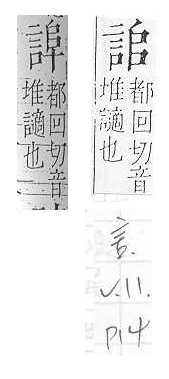 都回切音
堆謫也
都回切音
堆謫也
言.
V.11.
P14